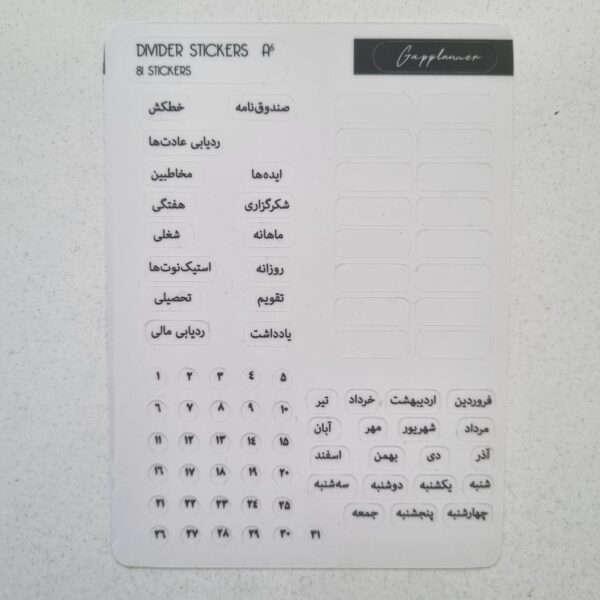 DIVIDER STICKERS A6
81 STICKERS
Gapplanner
صندوق‌نامه خطکش
ردیابی عادت‌ها
ایده‌ها مخاطبین
شکرگزاری هفتگی
ماهانه شغلی
روزانه استیک‌نوت‌ها
تقویم تحصیلی
یادداشت ردیابی مالی
۱ ۲ ۳ ۴ ۵
۶ ۷ ۸ ۹ ۱۰
۱۱ ۱۲ ۱۳ ۱۴ ۱۵
۱۶ ۱۷ ۱۸ ۱۹ ۲۰
۲۱ ۲۲ ۲۳ ۲۴ ۲۵
۲۶ ۲۷ ۲۸ ۲۹ ۳۰ ۳۱
فروردین اردیبهشت خرداد تیر
مرداد شهریور مهر آبان
آذر دی بهمن اسفند
شنبه یکشنبه دوشنبه سه‌شنبه
چهارشنبه پنجشنبه جمعه